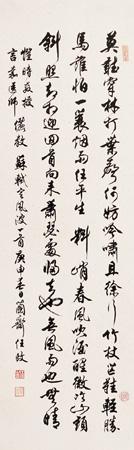 莫听穿林打葉聲何妨吟嘯且徐行竹杖芒鞋輕勝
馬誰怕一蓑烟雨任平生料峭春風吹酒醒微冷山頭
斜照却相迎回首向来蕭瑟處歸去也無風雨也無晴
惺時教授
言並医師 儷教 蘇軾定風波一首庚申春日蘭齋任政